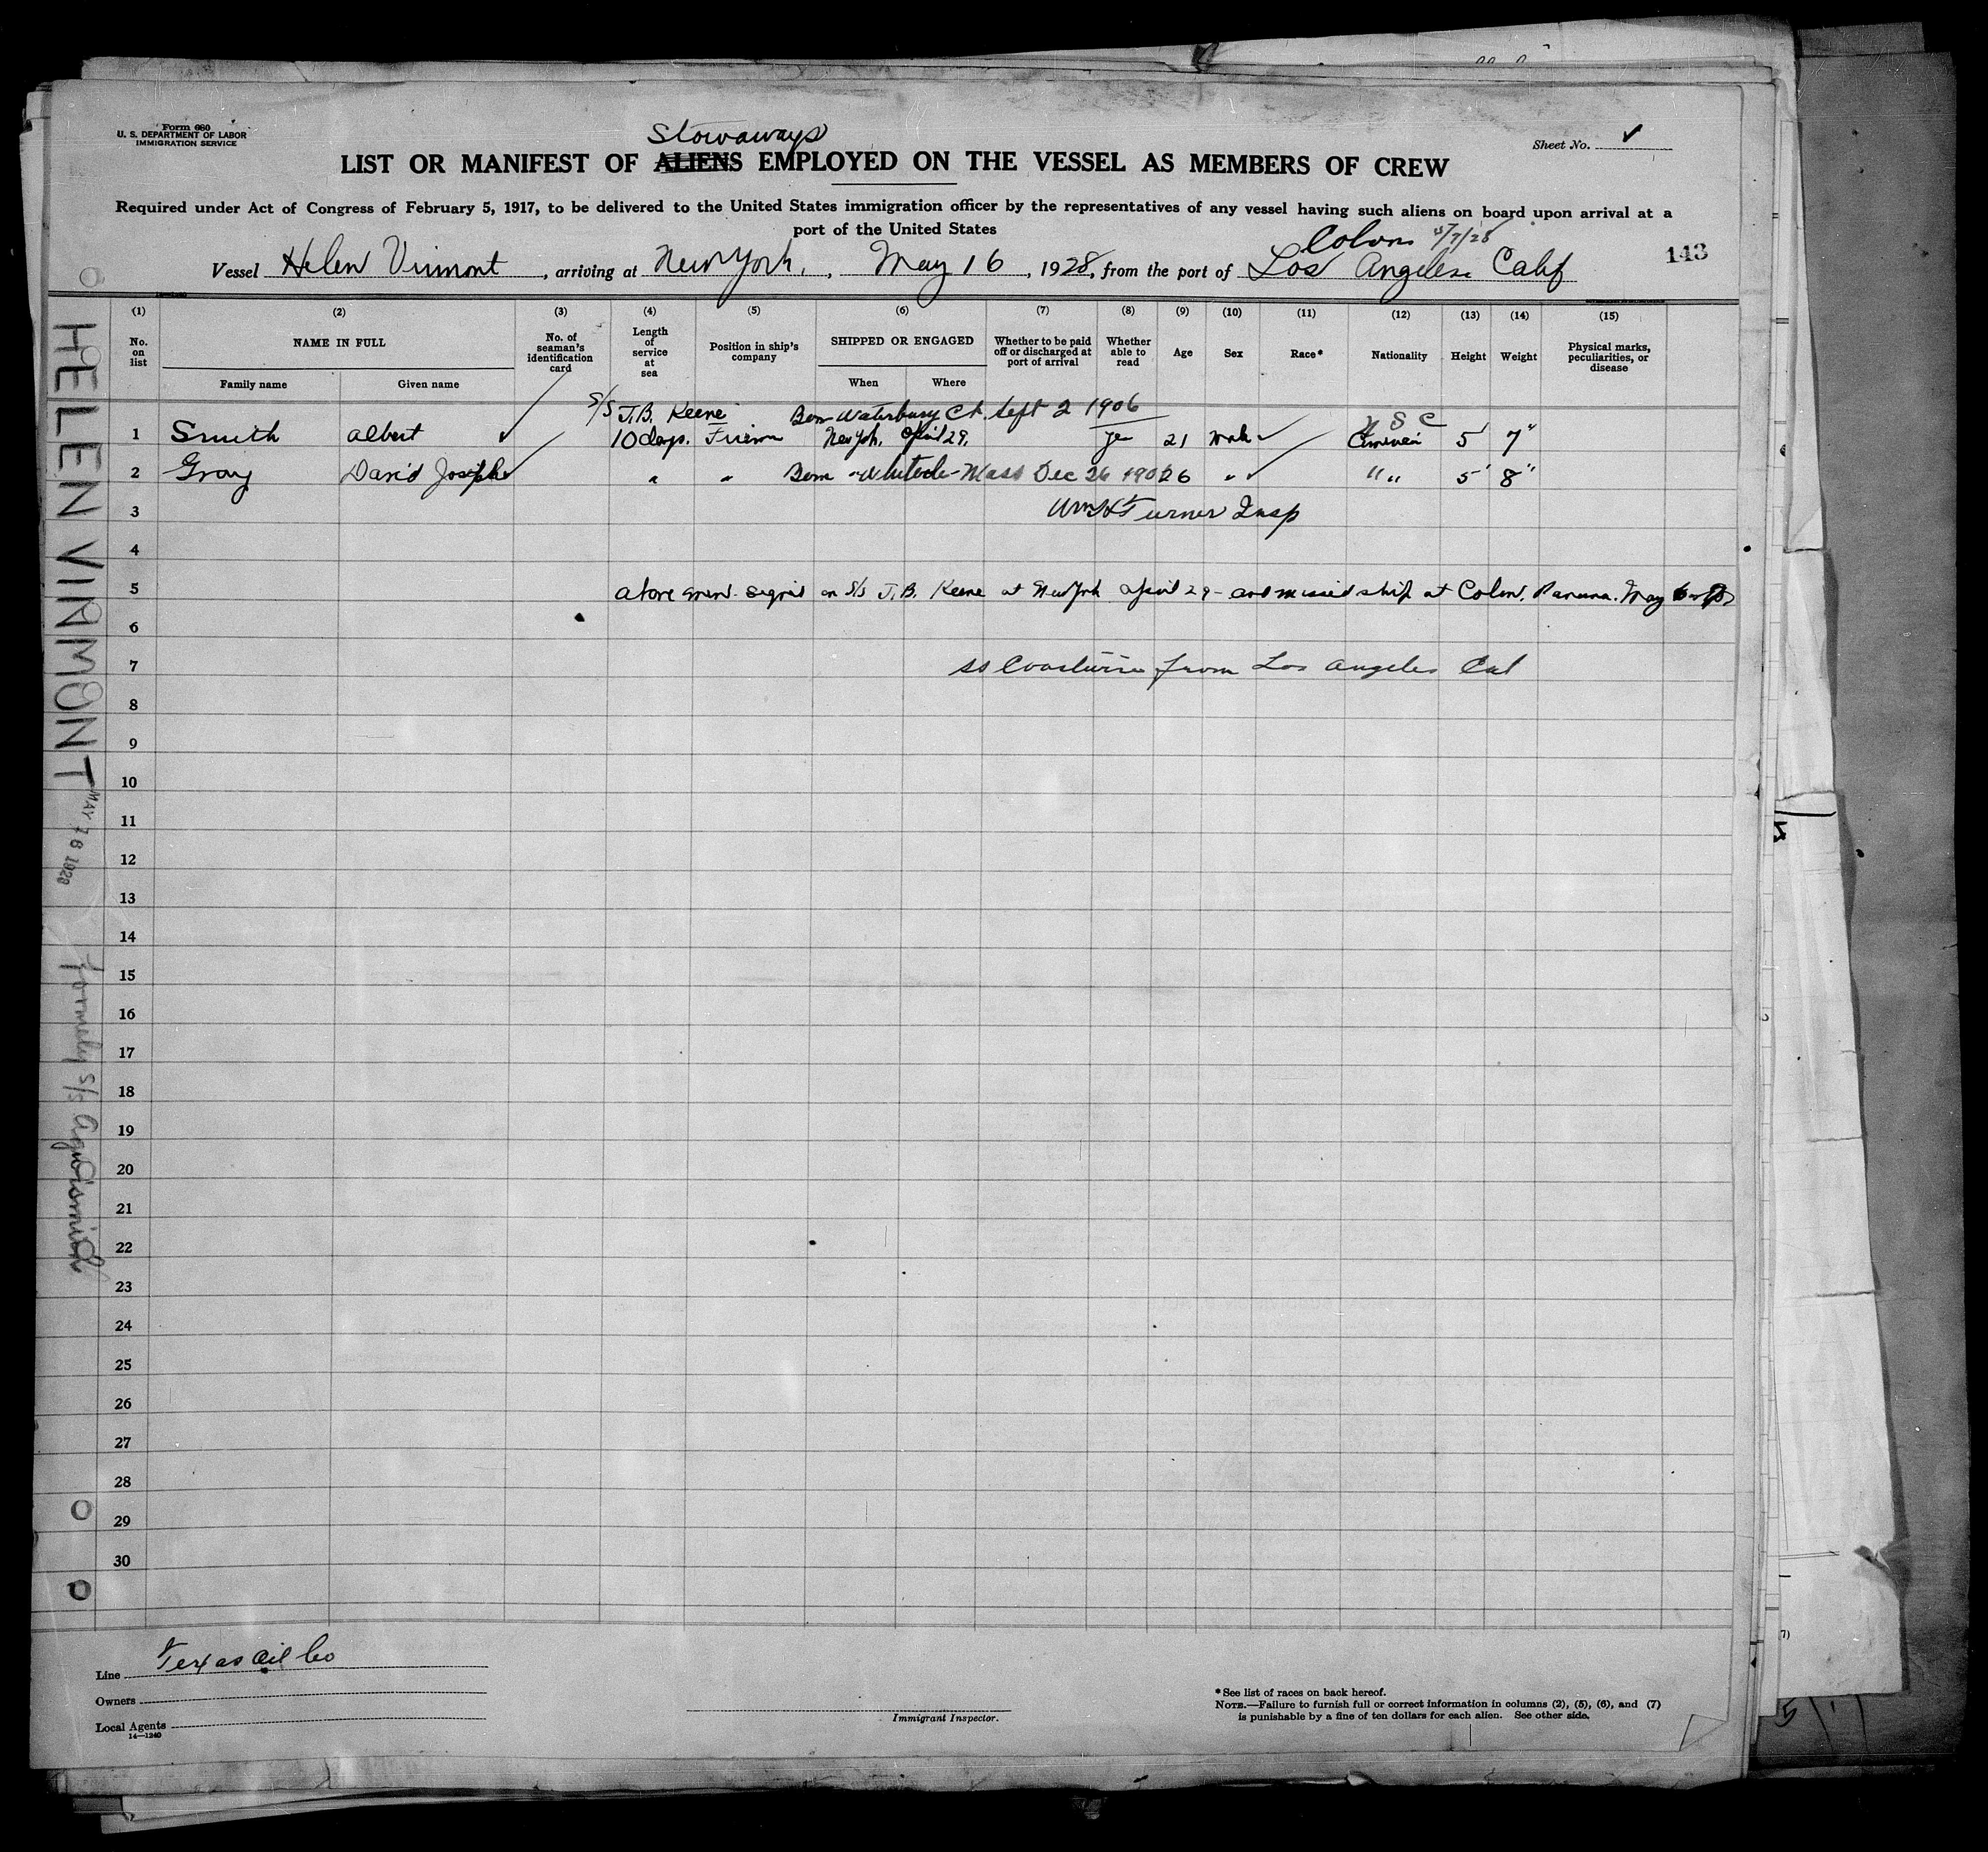 Form 680
U. S. DEPARTMENT OF LABOR
IMMIGRATION SERVICE
Sheet No. ✓
Stowaways
LIST OR MANIFEST OF ALIENS EMPLOYED ON THE VESSEL AS MEMBERS OF CREW
Required under Act of Congress of February 5, 1917, to be delivered to the United States immigration officer by the representatives of any vessel having such aliens on board upon arrival at a
port of the United States
Colon 5/7/28
Vessel Helen Virmont, arriving at New York, May 16, 1928, from the port of Los Angeles Calif
143
(1) (2) (3) (4) (5) (6) (7) (8) (9) (10) (11) (12) (13) (14) (15)
No. on list
NAME IN FULL
Family name Given name
No. of seaman's identification card
Length of service at sea
Position in ship's company
SHIPPED OR ENGAGED
When Where
Whether to be paid off or discharged at port of arrival
Whether able to read
Age
Sex
Race*
Nationality
Height
Weight
Physical marks, peculiarities, or disease
S/S J.B. Keene Born Waterbury Ct. Sept 2 1906
U S C
1 Smith Albert 10 days. New York, April 29. 21 5' 7"
2 Gray David Joseph " " Born Mass Dec 26 190 26 " " " 5' 8"
3 Wm H Turner Insp
4
5 Above men signed on S/S J.B. Keene at New York April 29 - and missed ship at Colon, Panama. May
6
7 SS from Los Angeles Cal
8
9
10
11
12
13
14
15
16
17
18
19
20
21
22
23
24
25
26
27
28
29
30
HELEN VIRMONT MAY 16 1928 formely S/S
Line Texas Oil Co
Owners
Local Agents
14—1240
Immigrant Inspector.
*See list of races on back hereof.
NOTE.—Failure to furnish full or correct information in columns (2), (5), (6), and (7)
is punishable by a fine of ten dollars for each alien. See other side.